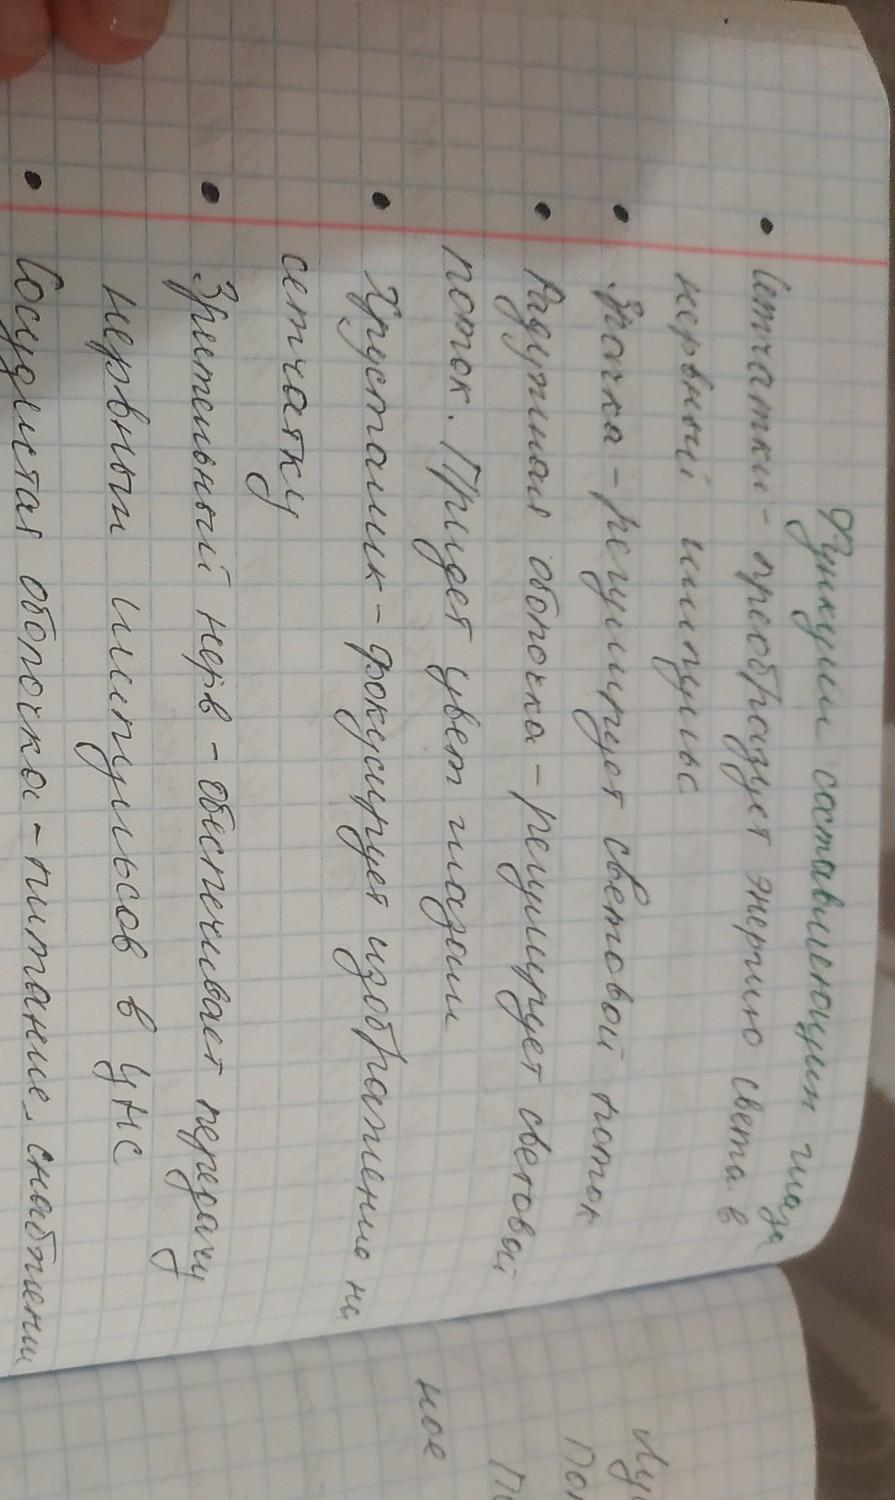 Функции составляющих глаза
• Сетчатки - преобразует энергию света в
нервный импульс
• Зрачка - регулирует световой поток
• Радужная оболочка - регулирует световой
поток. Придет цвет глазам
• Хрусталик - фокусирует изображение на
сетчатку
• Зрительный нерв - обеспечивает передачу
нервным импульсов в ЦНС
• Сосудистая оболочка - питание, снабжении
ное